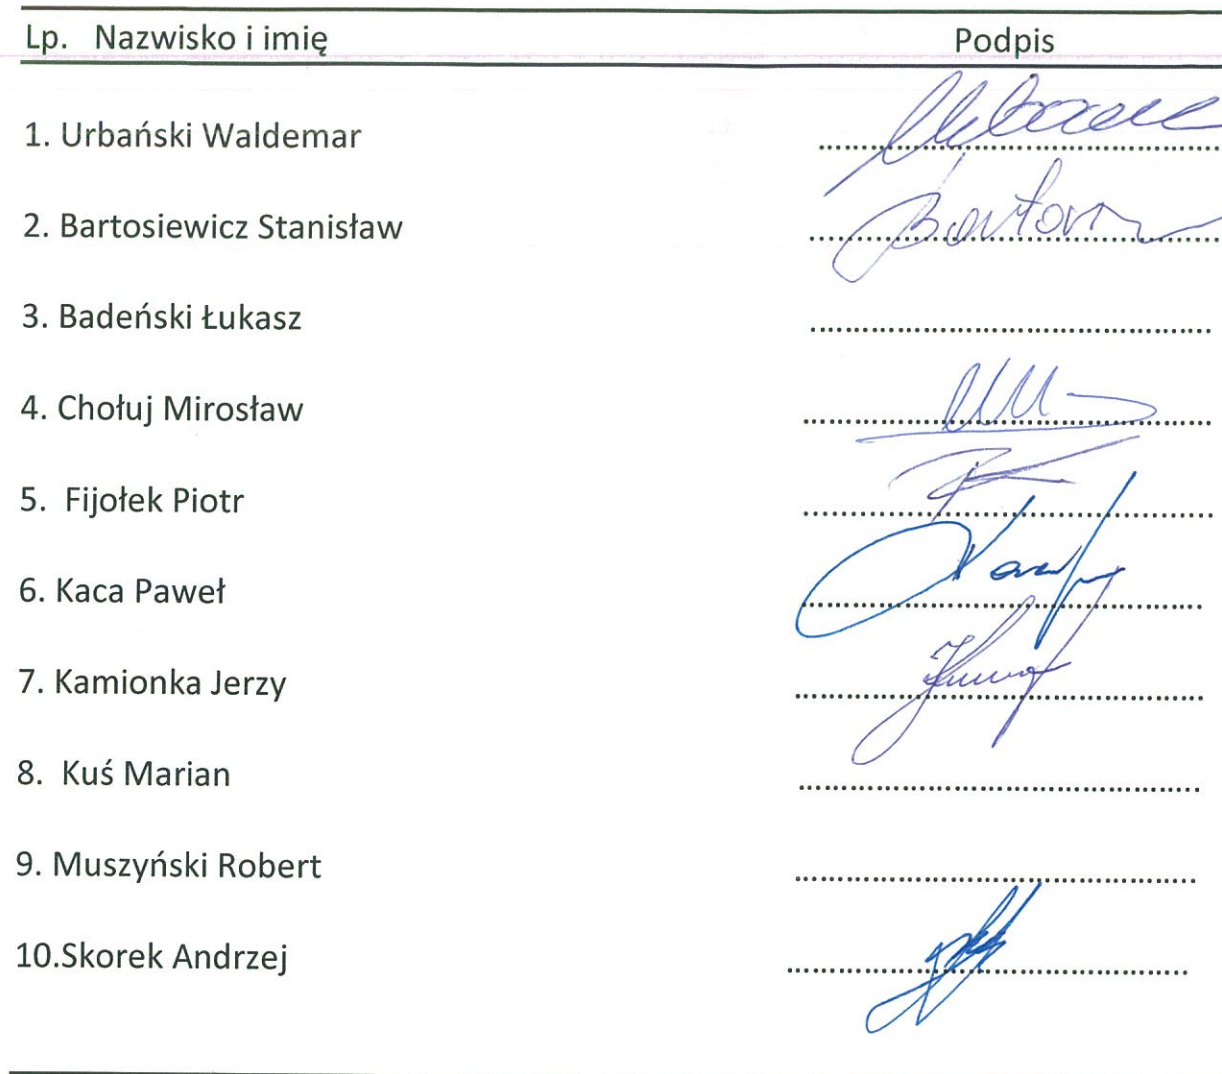 Lp. Nazwisko i imię Podpis
1. Urbański Waldemar
2. Bartosiewicz Stanisław
3. Badeński Łukasz
4. Chołuj Mirosław
5. Fijołek Piotr
6. Kaca Paweł
7. Kamionka Jerzy
8. Kuś Marian
9. Muszyński Robert
10.Skorek Andrzej